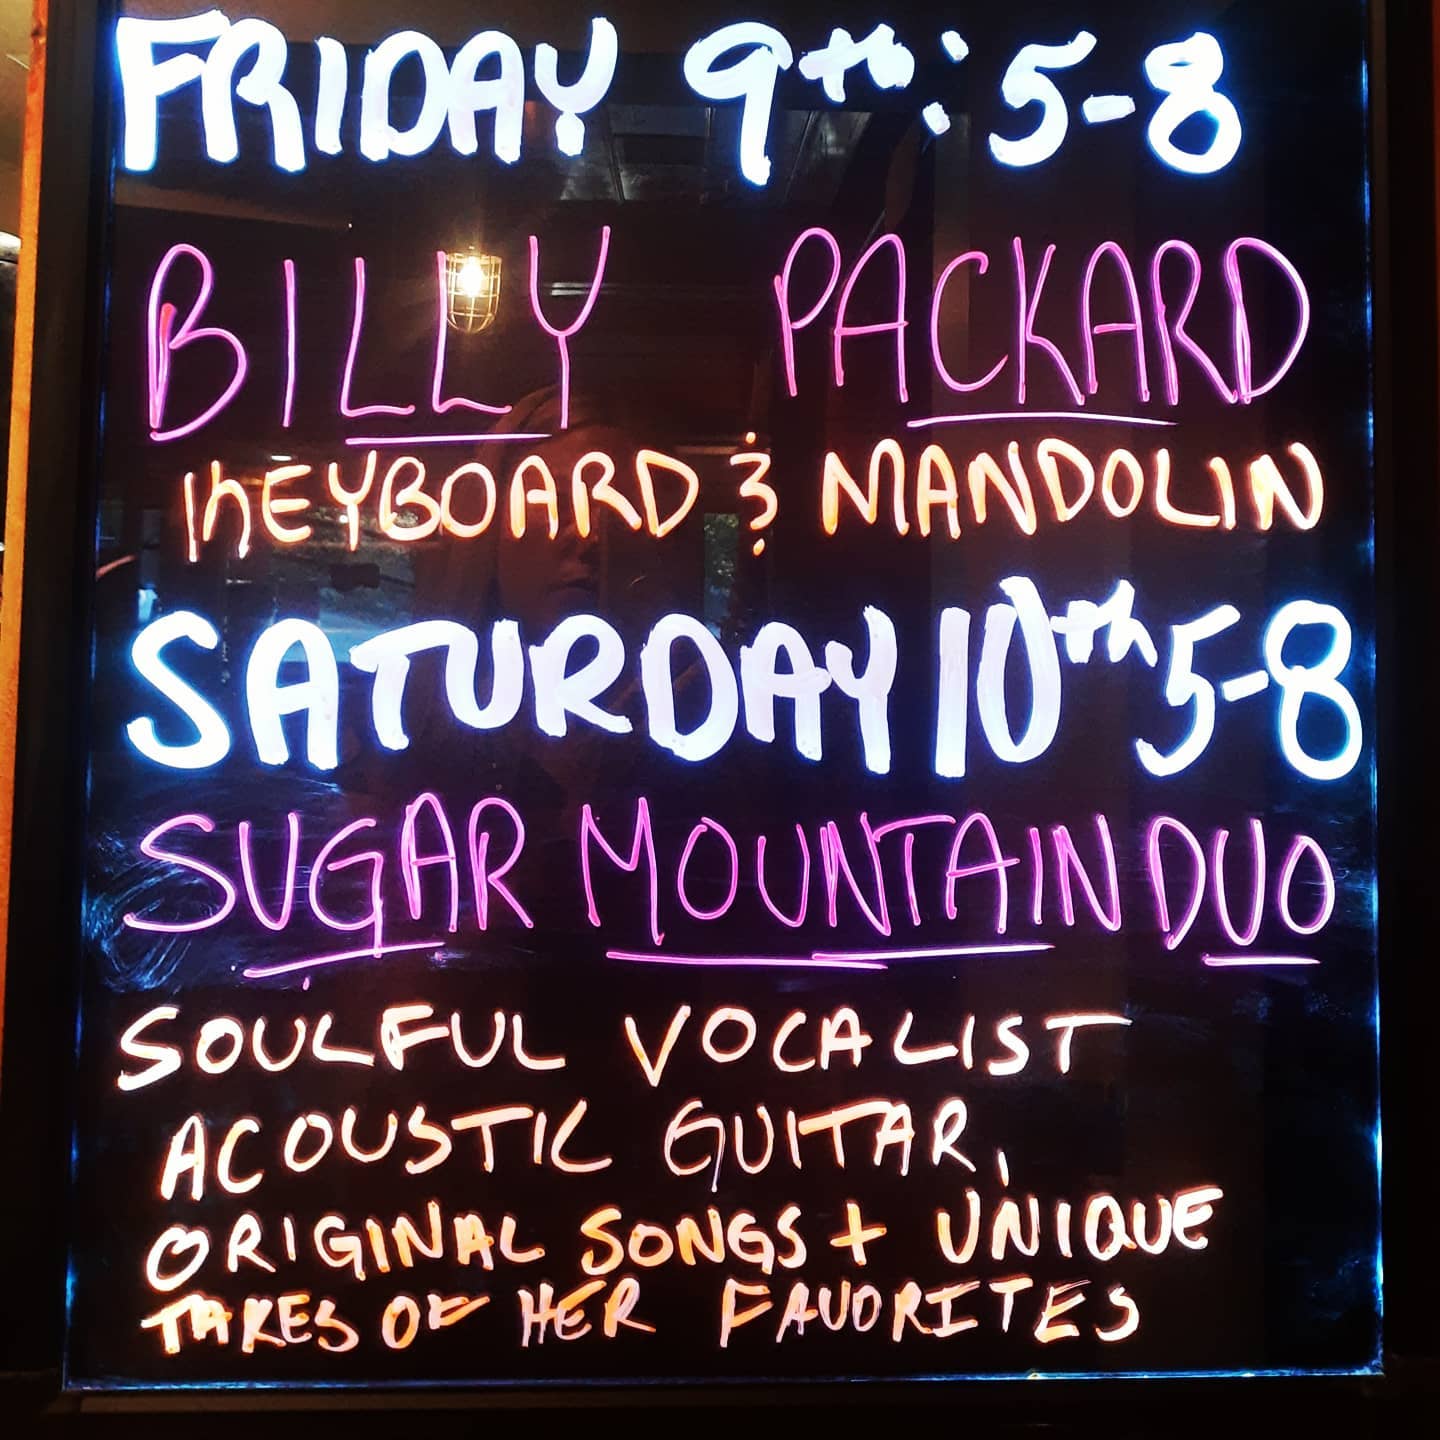 FRIDAY 9th: 5-8
BILLY PACKARD
KEYBOARD & MANDOLIN
SATURDAY 10th 5-8
SUGAR MOUNTAIN DUO
SOULFUL VOCALIST
ACOUSTIC GUITAR,
ORIGINAL SONGS + UNIQUE
TAKES OF HER FAVORITES